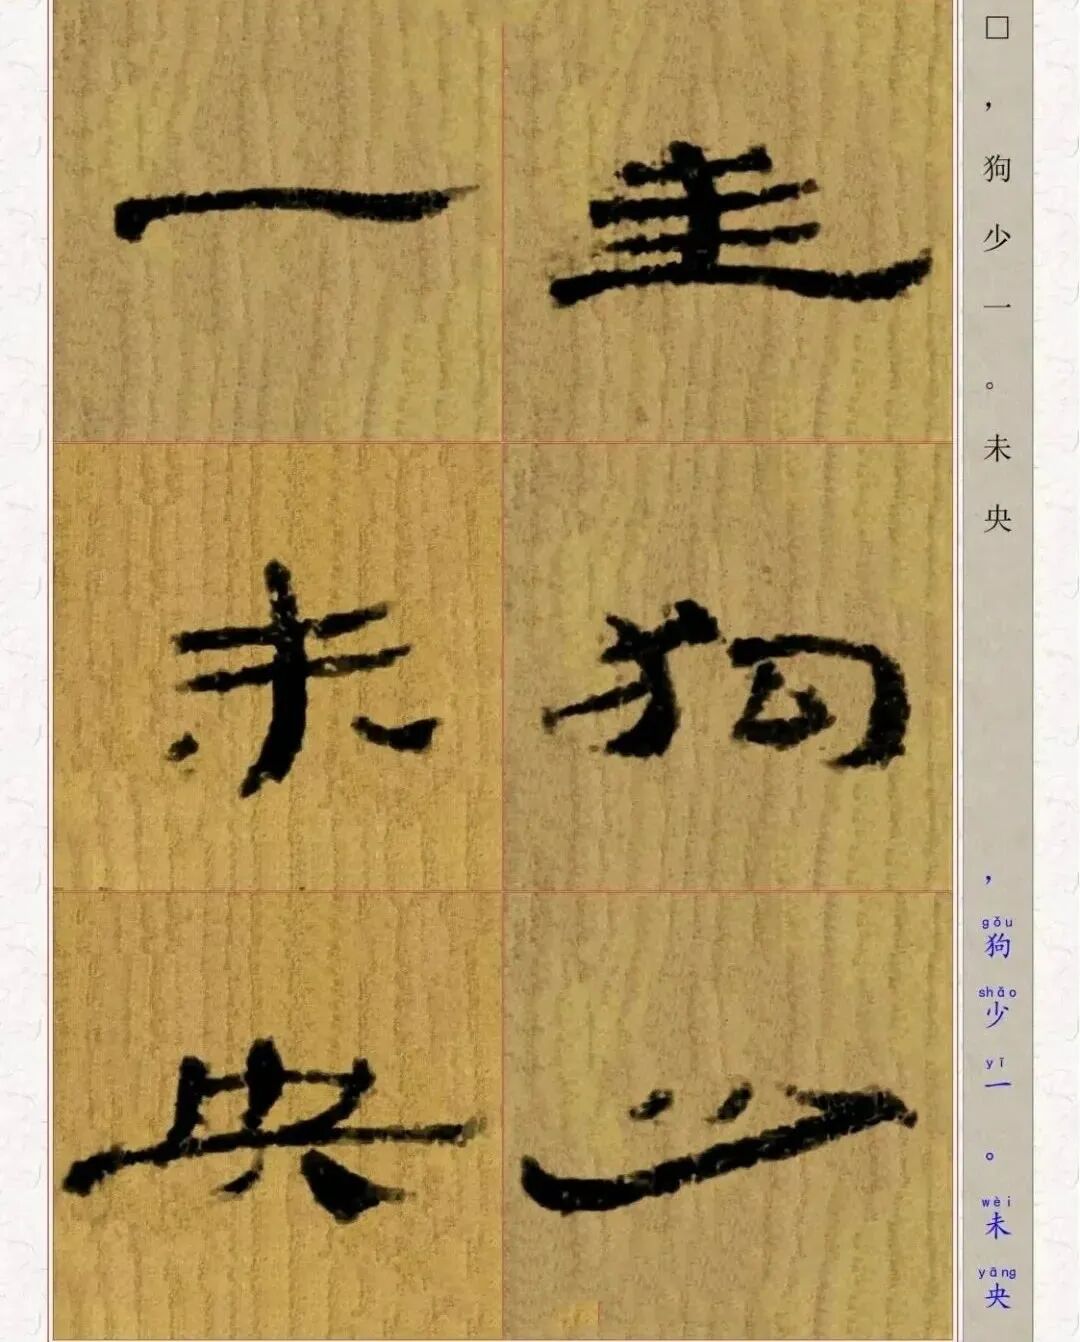 □，狗少一。未央
，狗少一。未央
gǒu shǎo yī wèi yāng
狗少
一未央